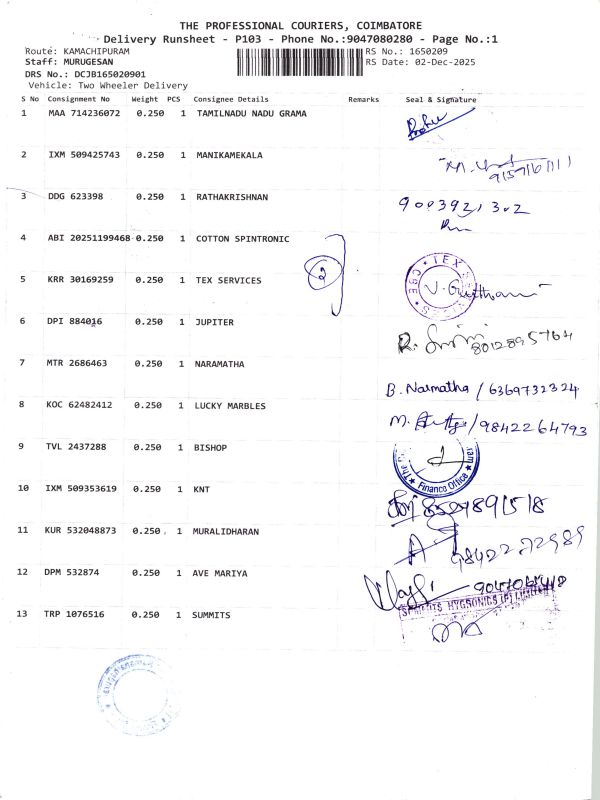 THE PROFESSIONAL COURIERS, COIMBATORE
Delivery Runsheet - P103 - Phone No.:9047080280 - Page No.:1
Route: KAMACHIPURAM RS No.: 1650209
Staff: MURUGESAN RS Date: 02-Dec-2025
DRS No.: DCJB165020901
Vehicle: Two Wheeler Delivery
S No Consignment No Weight PCS Consignee Details Remarks Seal & Signature
1 MAA 714236072 0.250 1 TAMILNADU NADU GRAMA
2 IXM 509425743 0.250 1 MANIKAMEKALA
3 DDG 623398 0.250 1 RATHAKRISHNAN 9003921302
4 ABI 20251199468 0.250 1 COTTON SPINTRONIC
5 KRR 30169259 0.250 1 TEX SERVICES 2 TEX CBE
6 DPI 884016 0.250 1 JUPITER 8012895764
7 MTR 2686463 0.250 1 NARAMATHA B. Narmatha / 6369732324
8 KOC 62482412 0.250 1 LUCKY MARBLES /9842264793
9 TVL 2437288 0.250 1 BISHOP Finance Office
10 IXM 509353619 0.250 1 KNT
11 KUR 532048873 0.250 1 MURALIDHARAN 9842272989
12 DPM 532874 0.250 1 AVE MARIYA
13 TRP 1076516 0.250 1 SUMMITS SUMMITS HYGRONICS (P) LIMITED